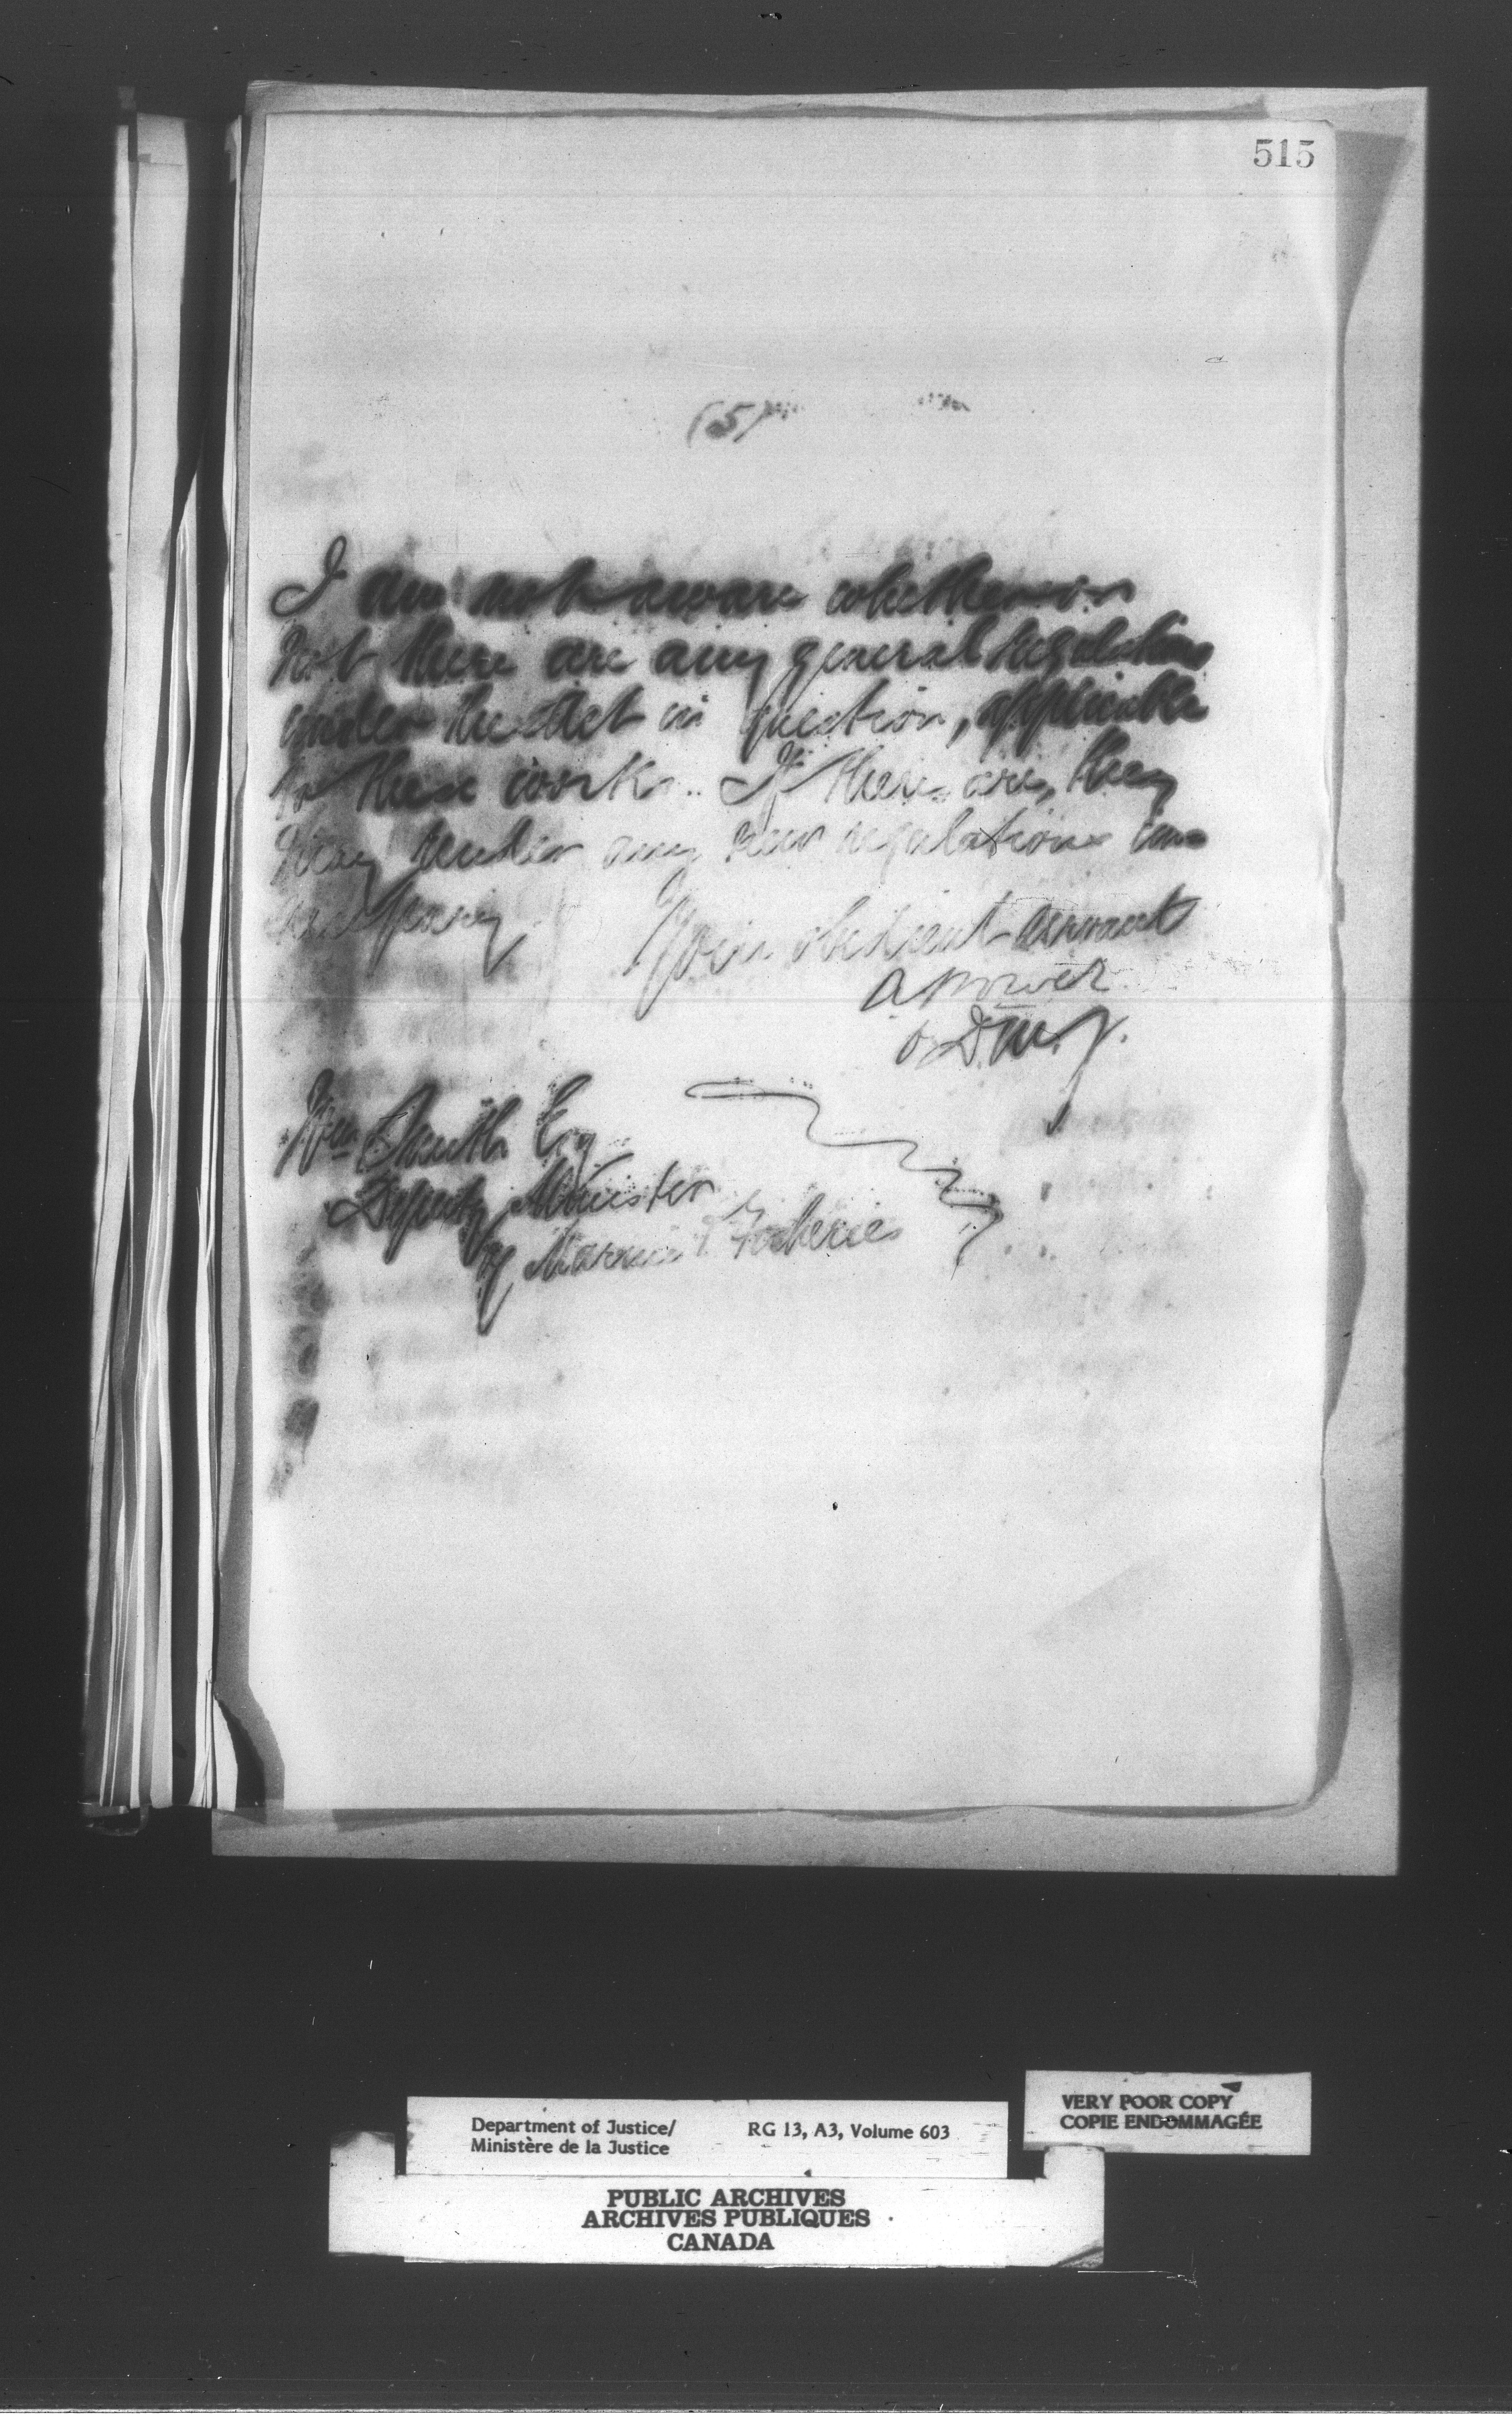 515
(5)
I am not aware whether or
not there are any general regulations
under the Act in question, applicable
to these works. If there are, they
may render any new regulations un-
necessary
Your obedient servant
A Power
D.M.J.
Wm Smith Esq
Deputy Minister
of Marine & Fisheries
Department of Justice/ RG 13, A3, Volume 603
Ministère de la Justice
VERY POOR COPY
COPIE ENDOMMAGÉE
PUBLIC ARCHIVES
ARCHIVES PUBLIQUES
CANADA